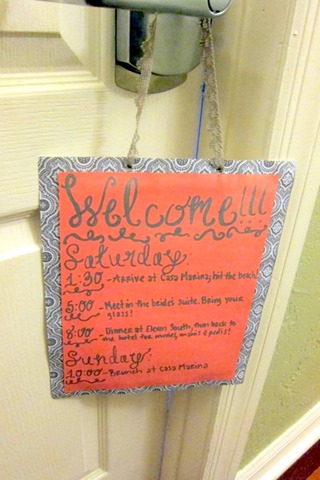 Welcome!!!
Saturday:
1:30 - Arrive at Casa Marina; hit the beach!
5:00 - Meet in the bride's suite. Bring your
glass!
8:00 - Dinner at Eleven South, then back to
the hotel for movies, manis & pedis!
Sunday:
10:00 - Brunch at Casa Marina